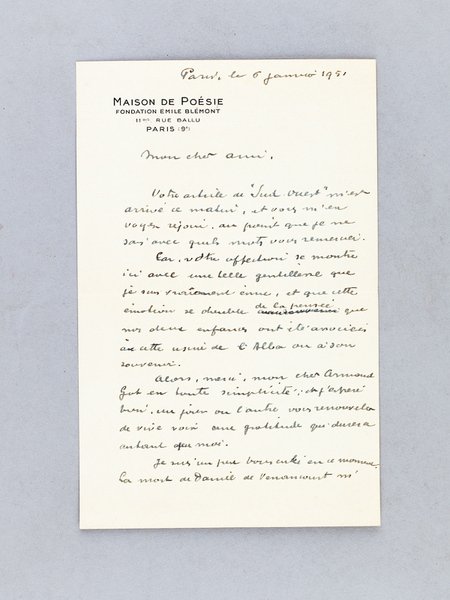 Paris, le 6 janvier 1951
MAISON DE POÉSIE
FONDATION ÉMILE BLÉMONT
11bis RUE BALLU
PARIS (9e)
Mon cher ami,
Votre article de "Sud-Ouest" m'est
arrivé ce matin, et vous m'en
voyez réjoui, au point que je ne
sais avec quels mots vous remercier.
Car, votre affection se montre
ici avec une telle gentillesse que
je suis vraiment ému, et que cette
émotion se double de la pensée que
nos deux enfances ont été associées
à cette
souvenir.
Alors, merci, mon cher Armand
Got en toute simplicité, et j'espère
bien, un jour ou l'autre vous renouveler
de vive voix une gratitude qui durera
autant que moi.
Je suis un peu bousculé en ce moment.
La mort de Daniel de Venancourt m'